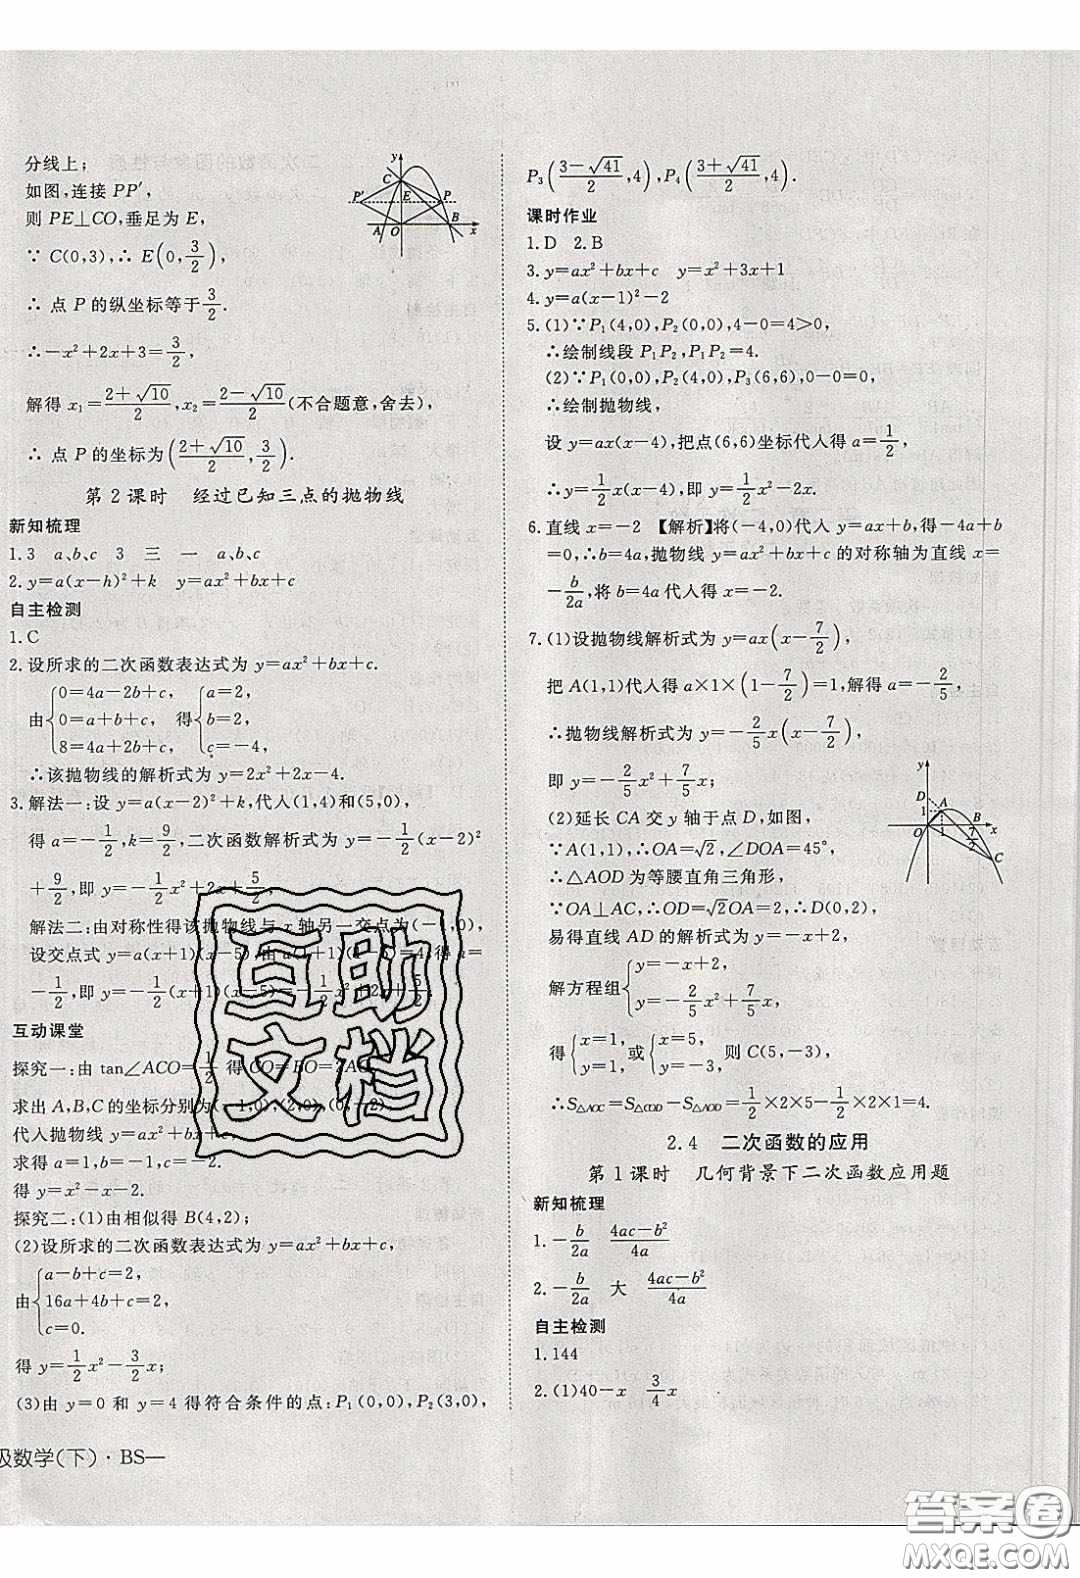 分线上;
如图,连接 PP′,
则 PE⊥CO,垂足为 E,
∵ C(0,3),∴ E(0,3/2),
∴ 点 P 的纵坐标等于3/2.
∴−x²+2x+3=3/2,
解得 x₁=(2+√10)/2,x₂=(2−√10)/2(不合题意,舍去),
∴ 点 P 的坐标为((2+√10)/2,3/2).
y
C
P′ E P
A O B x
第 2 课时 经过已知三点的抛物线
新知梳理
1.3 a、b、c 3 三 一 a、b、c
2.y=a(x−h)²+k y=ax²+bx+c
自主检测
1.C
2.设所求的二次函数表达式为 y=ax²+bx+c.
由{0=4a−2b+c, 0=a+b+c, 8=4a+2b+c, 得{a=2, b=2, c=−4,
∴该抛物线的解析式为 y=2x²+2x−4.
3.解法一:设 y=a(x−2)²+k,代人(1,4)和(5,0),
得 a=−1/2,k=9/2,二次函数解析式为 y=−1/2(x−2)²
+9/2,即 y=−1/2x²+2x+5/2.
解法二:由对称性得该抛物线与 x 轴另一交点为(−1,0),
设交点式 y=a(x+1)(x−5),由a(x+1)(x−5)得 a=
−1/2,即 y=−1/2(x+1)(x−5)=−1/2x²+2x+5/2.
互动课堂
探究一:由 tan∠ACO=1/2 得 CO=BO=2AO
求出 A,B,C 的坐标分别为(−1,0),(2,0),(0,−2)
代人抛物线 y=ax²+bx+c,
求得 a=1,b=−1,c=−2.
得 y=x²−x−2.
探究二:(1)由相似得 B(4,2);
(2)设所求的二次函数表达式为 y=ax²+bx+c,
由{a−b+c=2, 16a+4b+c=2, c=0.
得 y=1/2x²−3/2x;
(3)由 y=0 和 y=4 得符合条件的点:P₁(0,0),P₂(3,0),
级数学(下)·BS—
P₃((3−√41)/2,4),P₄((3+√41)/2,4).
课时作业
1.D 2.B
3.y=ax²+bx+c y=x²+3x+1
4.y=a(x−1)²−2
5.(1)∵P₁(4,0),P₂(0,0),4−0=4>0,
∴绘制线段 P₁P₂,P₁P₂=4.
(2)∵P₁(0,0),P₂(4,0),P₃(6,6),0−0=0,
∴绘制抛物线,
设 y=ax(x−4),把点(6,6)坐标代人得 a=1/2,
∴y=1/2x(x−4),即 y=1/2x²−2x.
6.直线 x=−2 【解析】将(−4,0)代人 y=ax+b,得−4a+b
=0,∴b=4a,抛物线 y=ax²+bx+c 的对称轴为直线 x=
−b/2a,把 b=4a 代人得 x=−2.
7.(1)设抛物线解析式为 y=ax(x−7/2),
把 A(1,1)代人得 a×1×(1−7/2)=1,解得 a=−2/5,
∴抛物线解析式为 y=−2/5x(x−7/2),
即 y=−2/5x²+7/5x;
(2)延长 CA 交 y 轴于点 D,如图,
∵A(1,1),∴OA=√2,∠DOA=45°,
∴△AOD 为等腰直角三角形,
∵OA⊥AC,∴OD=√2OA=2,∴D(0,2),
易得直线 AD 的解析式为 y=−x+2,
解方程组{y=−x+2, y=−2/5x²+7/5x,
得{x=1, y=1,或{x=5, y=−3, 则 C(5,−3),
∴S△AOC=S△COD−S△AOD=1/2×2×5−1/2×2×1=4.
y
D A
1 B
O 1 7/2 x
C
2.4 二次函数的应用
第 1 课时 几何背景下二次函数应用题
新知梳理
1.−b/2a (4ac−b²)/4a
2.−b/2a 大 (4ac−b²)/4a
自主检测
1.144
2.(1)40−x 3/4x
互助
文档
答案圈
MXQE.COM